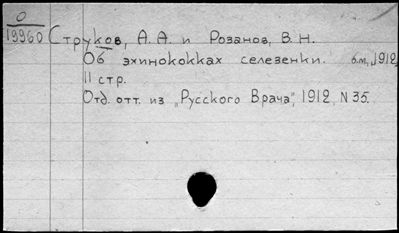 О
19960
Струков, А.А. и Розанов, В.Н.
Об эхинококках селезенки. б.м., 1912,
11 стр.
Отд. отт. из „Русского Врача", 1912, N 35.